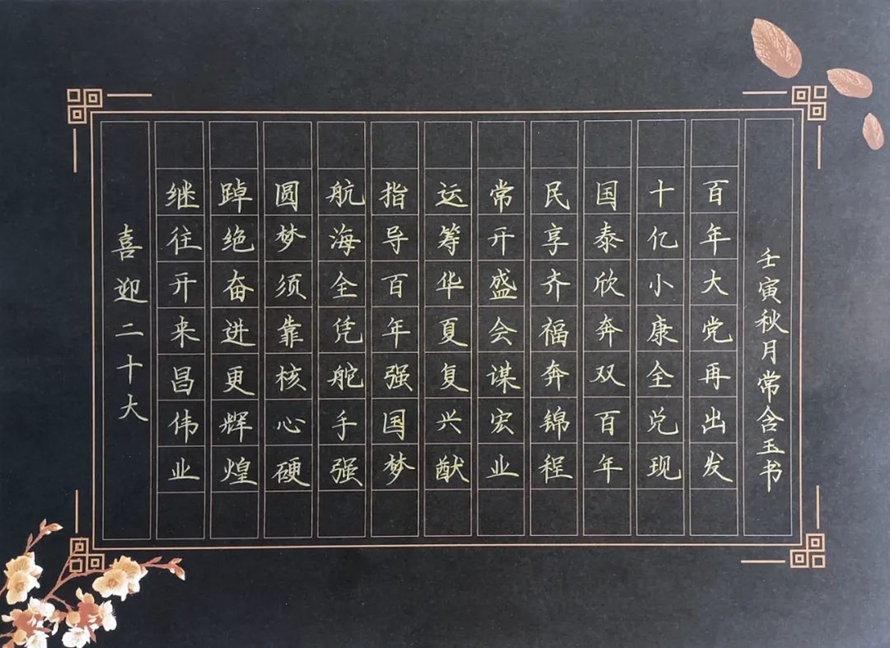 喜迎二十大
继往开来昌伟业
踔绝奋进更辉煌
圆梦须靠核心硬
航海全凭舵手强
指导百年强国梦
运筹华夏复兴猷
常开盛会谋宏业
民享齐福奔锦程
国泰欣奔双百年
十亿小康全兑现
百年大党再出发
壬寅秋月常含玉书